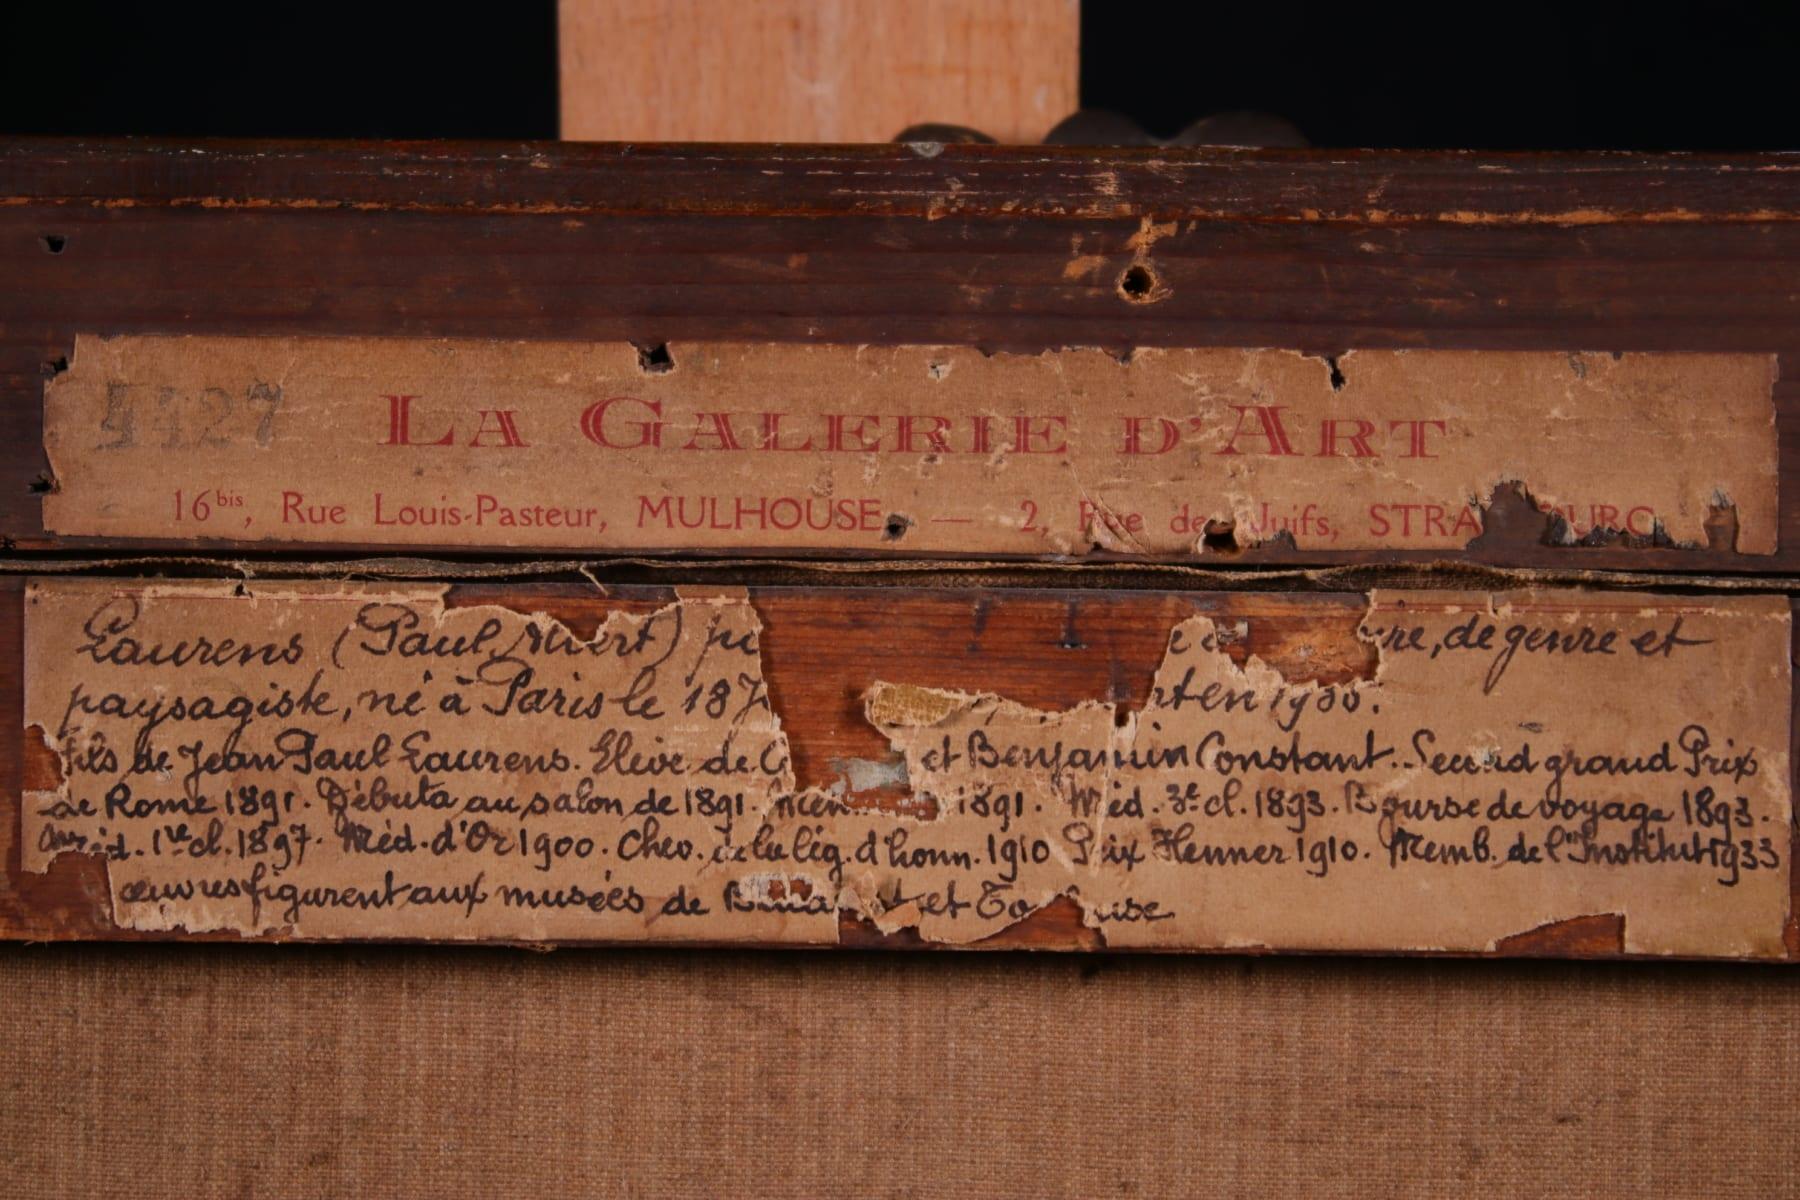 4427
LA GALERIE D'ART
16bis, Rue Louis-Pasteur, MULHOUSE. — 2, Rue des Juifs, STRA OURG
Laurens (Paul Albert) re, de genre et
paysagiste, né à Paris le 187 rt en 19
fils de Jean Paul Laurens. Elève de et Benjamin Constant. Second grand Prix
de Rome 1891. Débuta au salon de 1891. Men 1891. Méd. 3e cl. 1893. Bourse de voyage 1893.
Méd. 1re cl. 1897. Méd. d'Or 1900. Chev. de la lég. d'honn. 1910 Prix Henner 1910. Memb. de l'Institut 1933
œuvres figurent aux musées de et To use